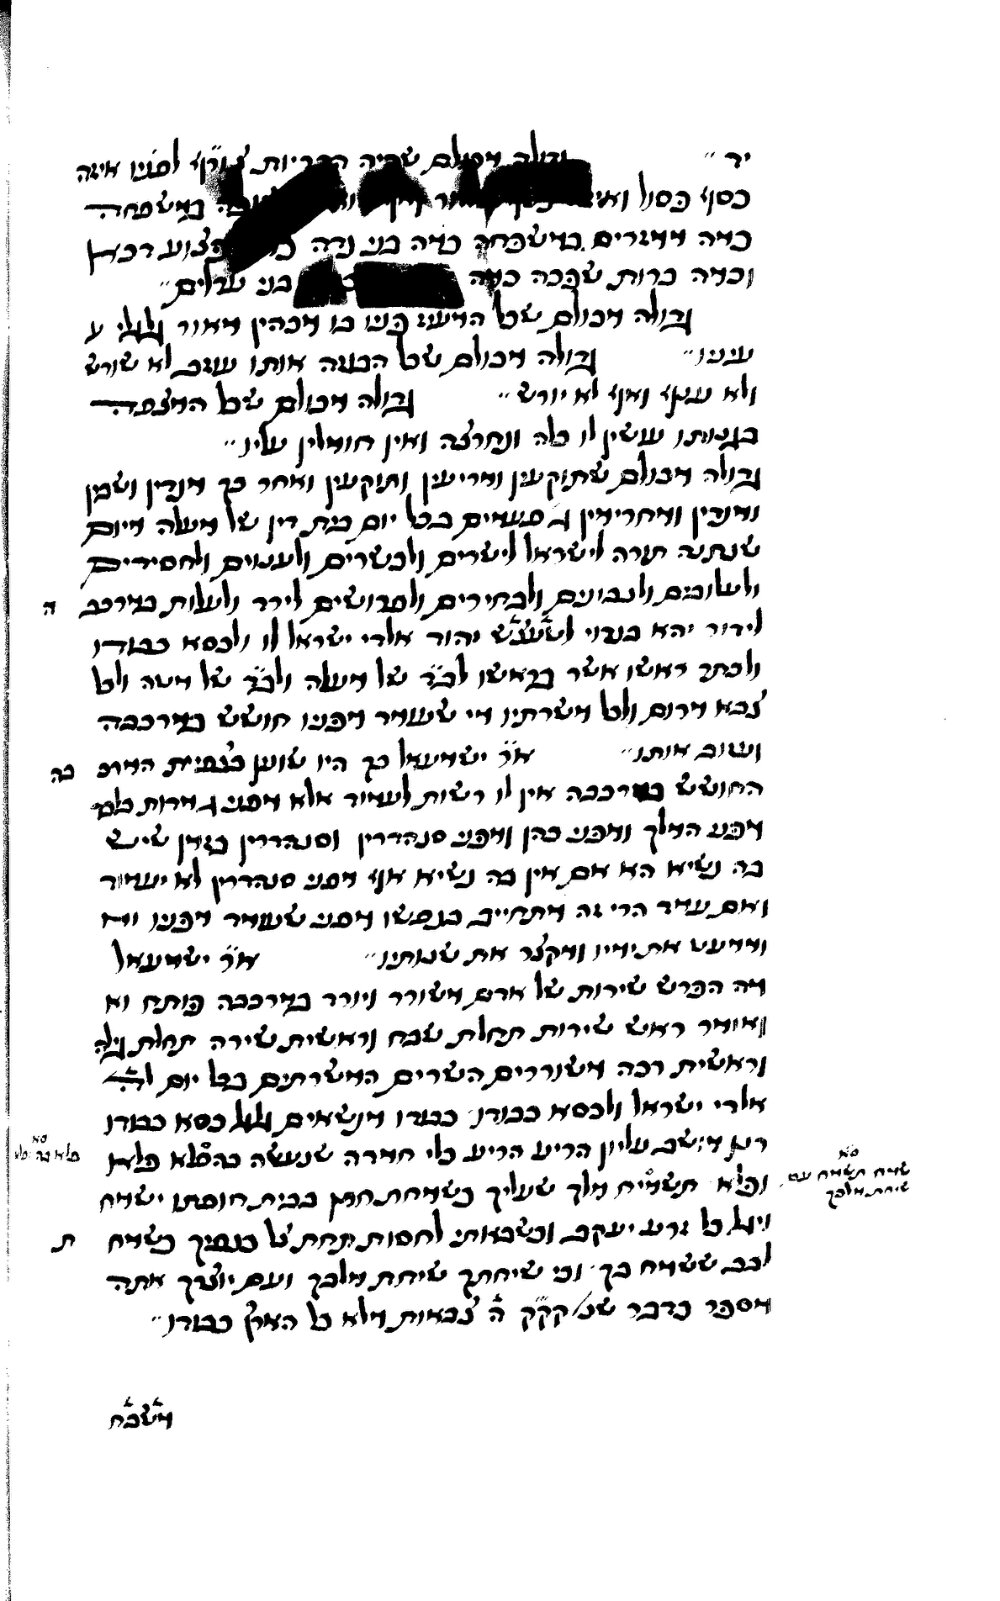 יד״ גדולה מכולם שהיה הבריות לפניו
כסף פסול במשפחה
כמה ממזרים במשפחה כמה בני נדה
וכמה כרות שפכה כמה בני ערלים״
גדולה מכולם שכל המעיז פניו בו מכהין מאור גלגלי ע
עיניו״ גדולה מכולם שכל המגנה אותו לא שורש
ולא ענף ואין לא יורש״ גדולה מכולם שכל המצפה
בגנותו עושין לו כלה ונחרצה ואין חומלין עליו״
גדולה מכולם שתוקעין ומריעין ותוקעין ואחר כך מנדין ושמן
ומנדין ומחרימין ג׳ פעמים בכל יום בית דין של מעלה מיום
שנתנה תורה לישראל לישרים ולכשרים ולענוים ולחסידים
ולעלובים ולנבונים ולבחירים ולפרושים לירד ולעלות במרכב ה
לידור יהא בנדוי יהוד אלהי ישראל לו ולכסא כבודו
ולכתר ראשו אשר בראשו לב״ד של מעלה ולב״ד של מטה ולכל
צבא מרום ולכל משרתיו מי שעומד מפניו חושש במרכבה
ועוזב אותו״ א״ר ישמעאל כך היו שונין בצפיית המרכ בה
החושש במרכבה אין לו רשות לעמוד אלא מפני ג מדות בלבד
מפני המלך ומפני כהן ומפני סנהדרין וסנהדרין בזמן שיש
בה נשיא הא אם אין בה נשיא אף מפני סנהדרין לא יעמוד
ואם עמד הרי זה מתחייב בנפשו מפני שעומד מפניו
וממעט את ימיו ומקצר את שנותיו״ א״ר ישמעאל
מה הפרש שירות של אדם משורר ויורד במרכבה פותח וא
ואומר ראש שירות תחלת שבח וראשית שירה תחלת גילה
וראשית רנה משוררים השרים המשרתים בכל יום לה׳
אלהי ישראל ולכסא כבודו כבודו מנשאים גלגל כסא כבודו
רנן מושב עליון הריע הריע כלי חמדה שנעשה בהפלא פלאו
ופלא תשמיח מלך שעליך כשמחת חתן בבית חופתו ישמח
ויגל כל זרע יעקב וכשבאותי לחסות תחת צל כנפיך בשמח ת
לבב ששמח בך וכי שיחתך שיחת מלכך ועם יוצרך אתה
מספר כדבר שנ׳ קק״ק ה׳ צבאות מלא כל הארץ כבודו״
ס״א
שמח תשמח עם
שיחת מלכך
ס״א
משבח